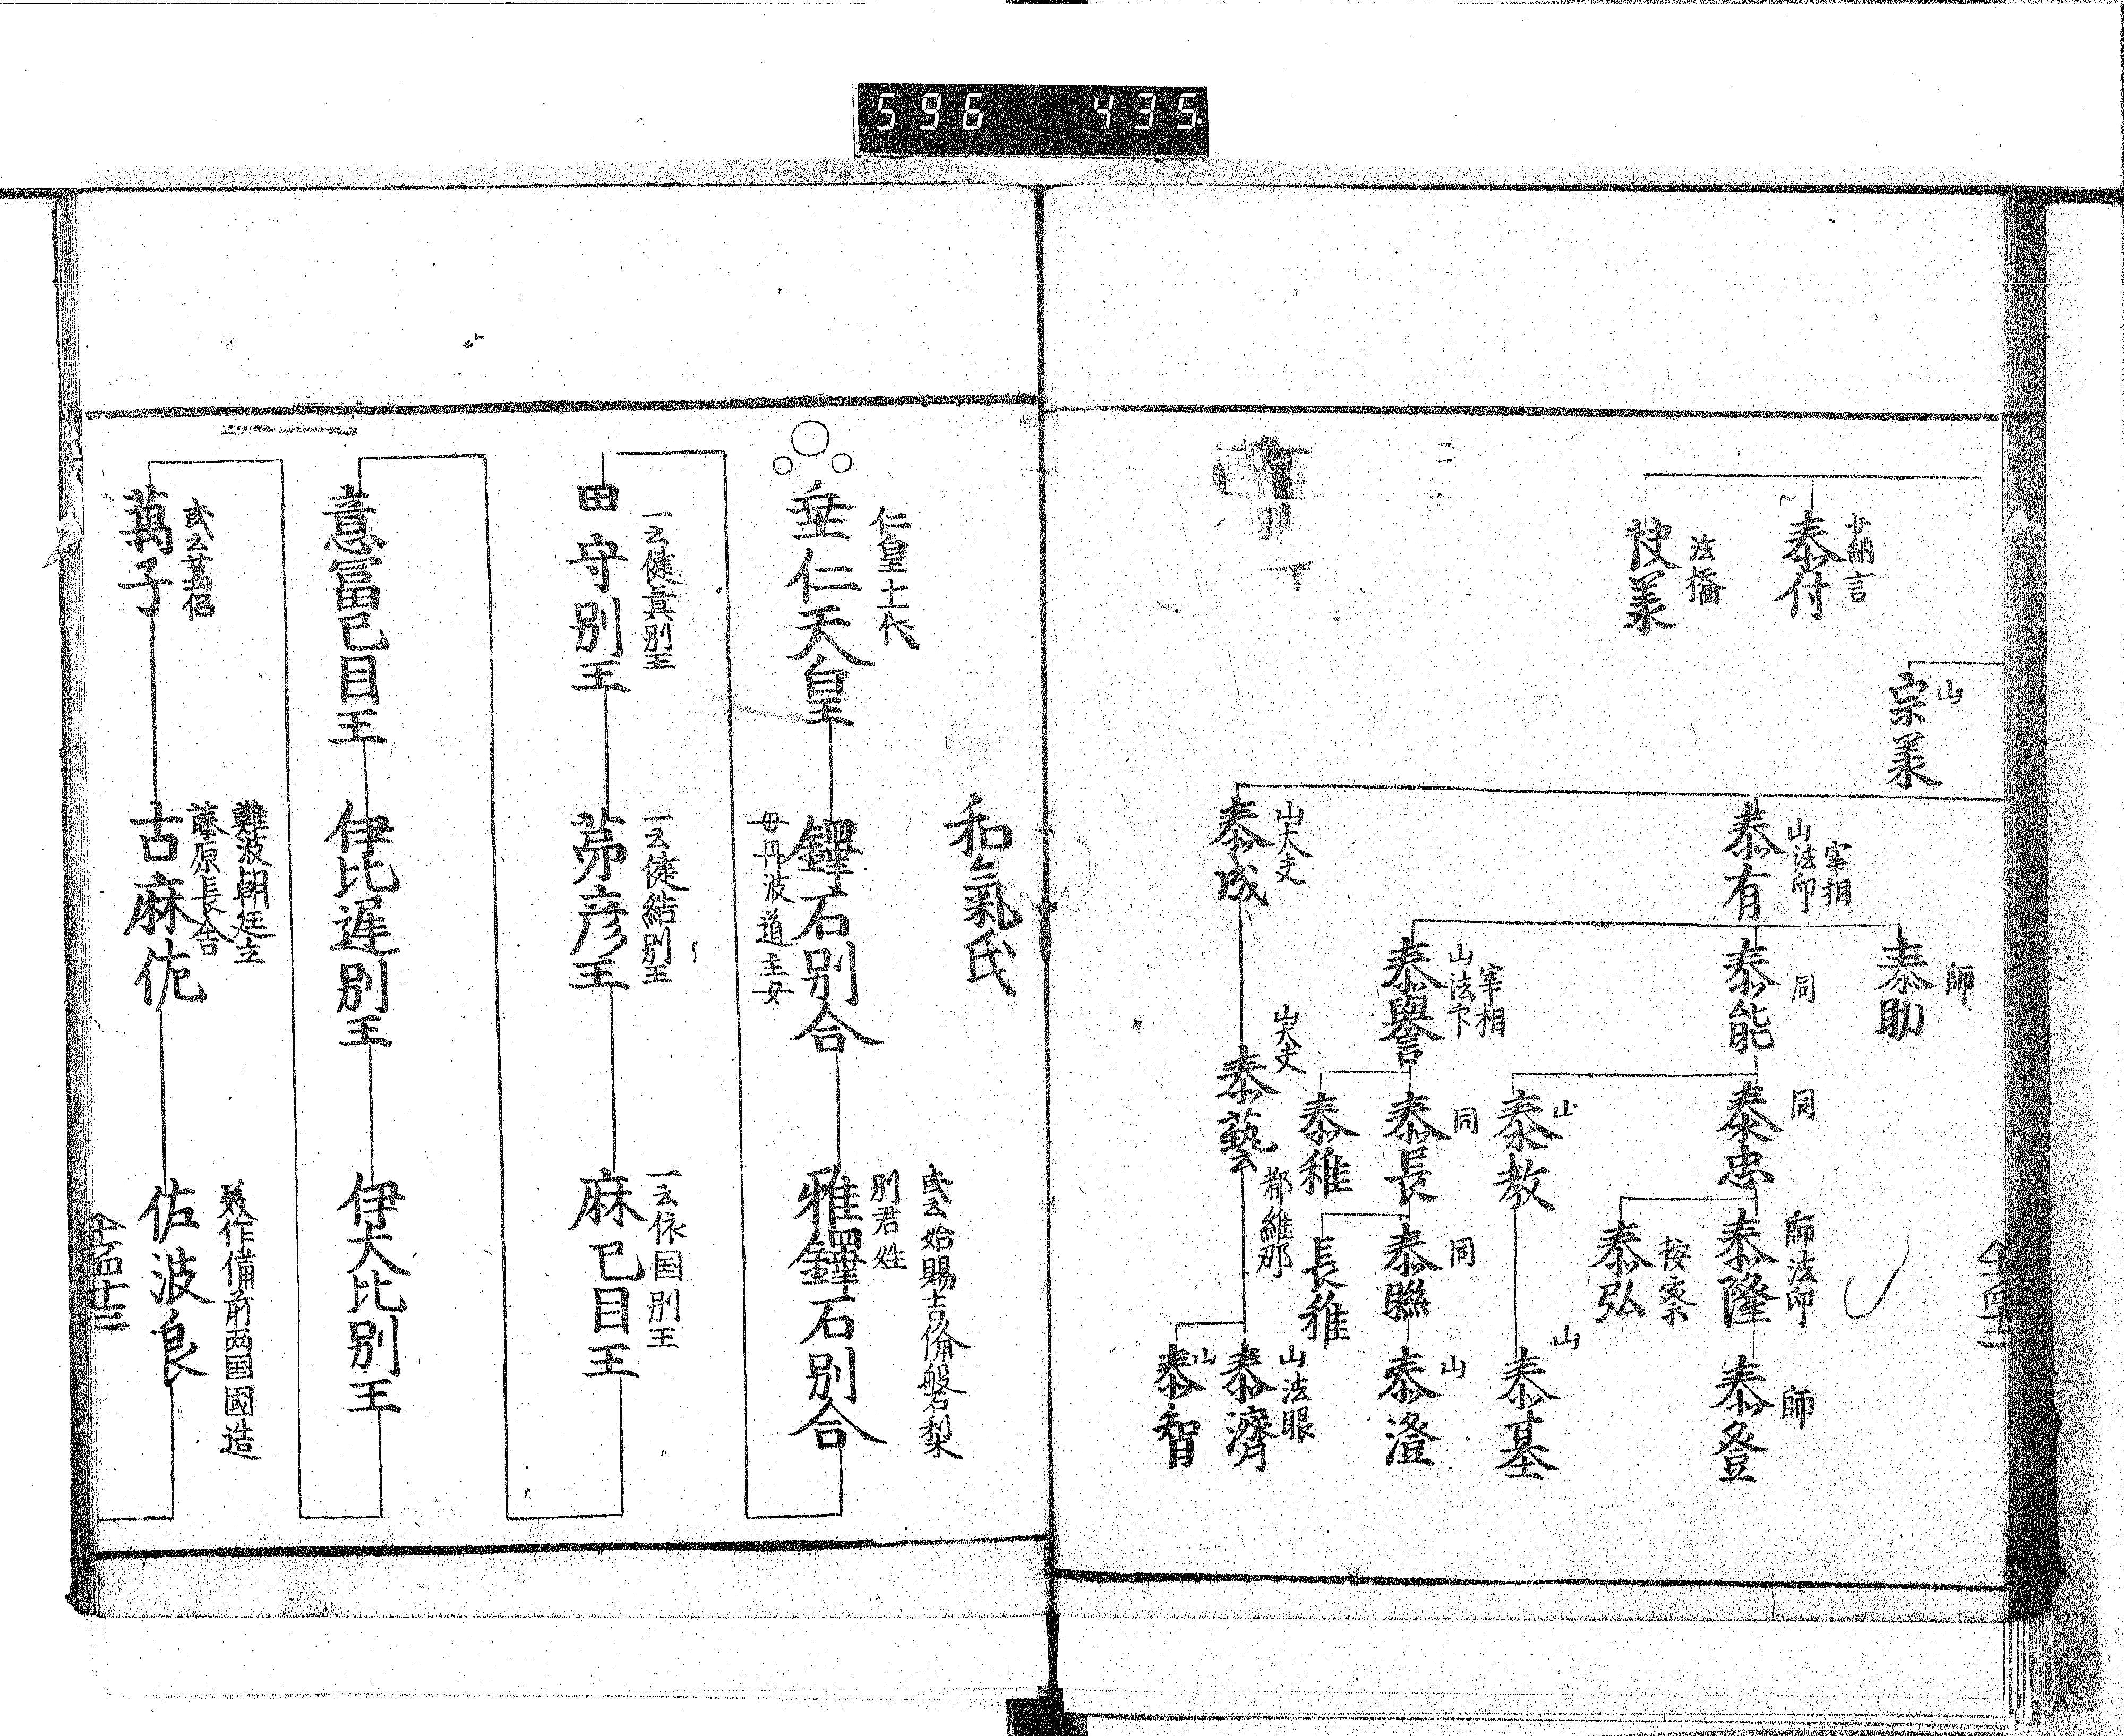 596 435
少納言
泰付
法橋
山
宗
宰相
山法印
泰有
山大夫
泰成
師
泰助
同
泰能
宰相
山法下
泰譽
山大夫
泰藝
都維那
同
泰忠
山
泰教
同
泰長
泰稚
師法印
泰隆
按察
泰弘
同
泰聯
長稚
師
泰登
山
泰基
山
泰澄
山法眼
泰濟
山
泰智
和氣氏
仁皇十一代
垂仁天皇
鐸石別合
母丹波道主女
或云始賜吉備磐石梨
別君姓
稚鐸石別合
一云健真別王
田守別王
一云健結別王
茀彦王
一云依国別王
麻己目王
意富己目王
伊比遅別王
伊大比別王
或云萬侶
萬子
難波朝廷立
藤原長舎
古麻佐
美作備前両国國造
佐波良